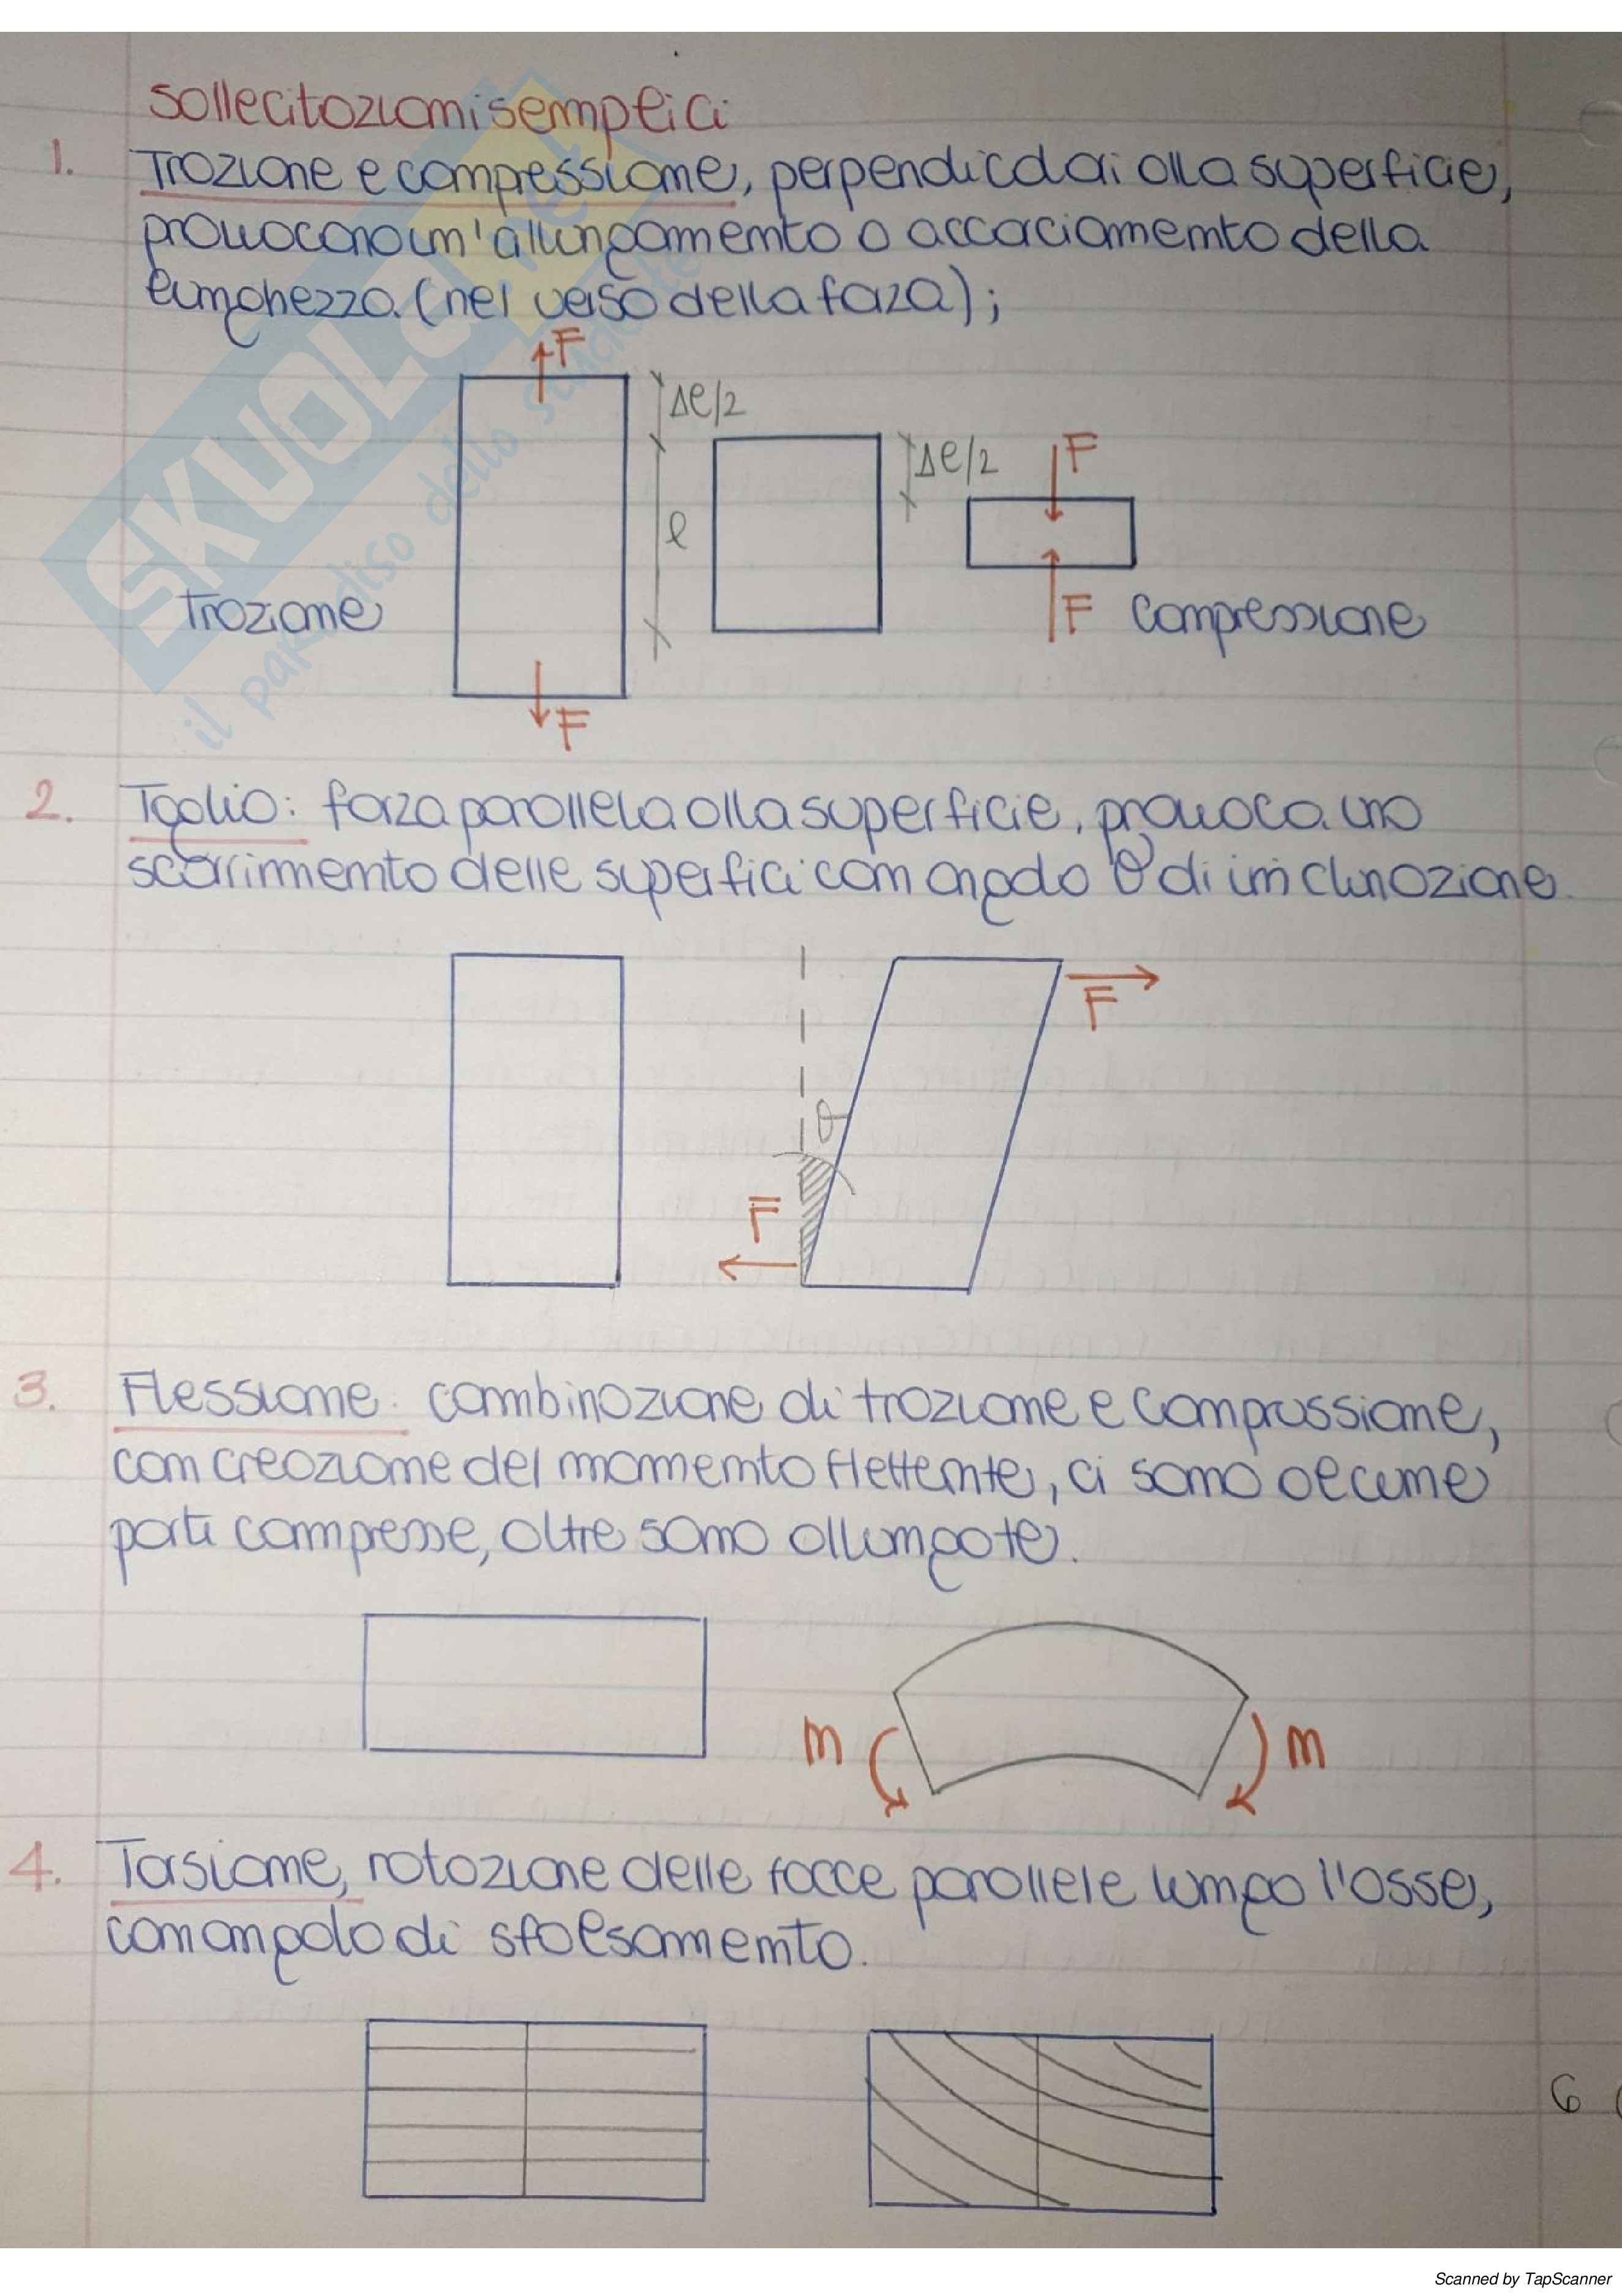 Sollecitazioni semplici
1. Trazione e compressione, perpendicolari alla superficie,
provocano un'allungamento o accorciamento della
lunghezza (nel verso della forza);
F
Δl/2
Δl/2
F
l
Trazione
F
Compressione
F
2. Taglio: forza parallela alla superficie, provoca uno
scorrimento delle superfici con angolo θ di inclinazione.
F
θ
F
3. Flessione: combinazione di trazione e compressione,
con creazione del momento flettente, ci sono alcune
parti compresse, altre sono allungate.
m
m
4. Torsione, rotazione delle facce parallele lungo l'asse,
con angolo di sfalsamento.
6
SKUOLA.net
il paradiso dello studente
Scanned by TapScanner